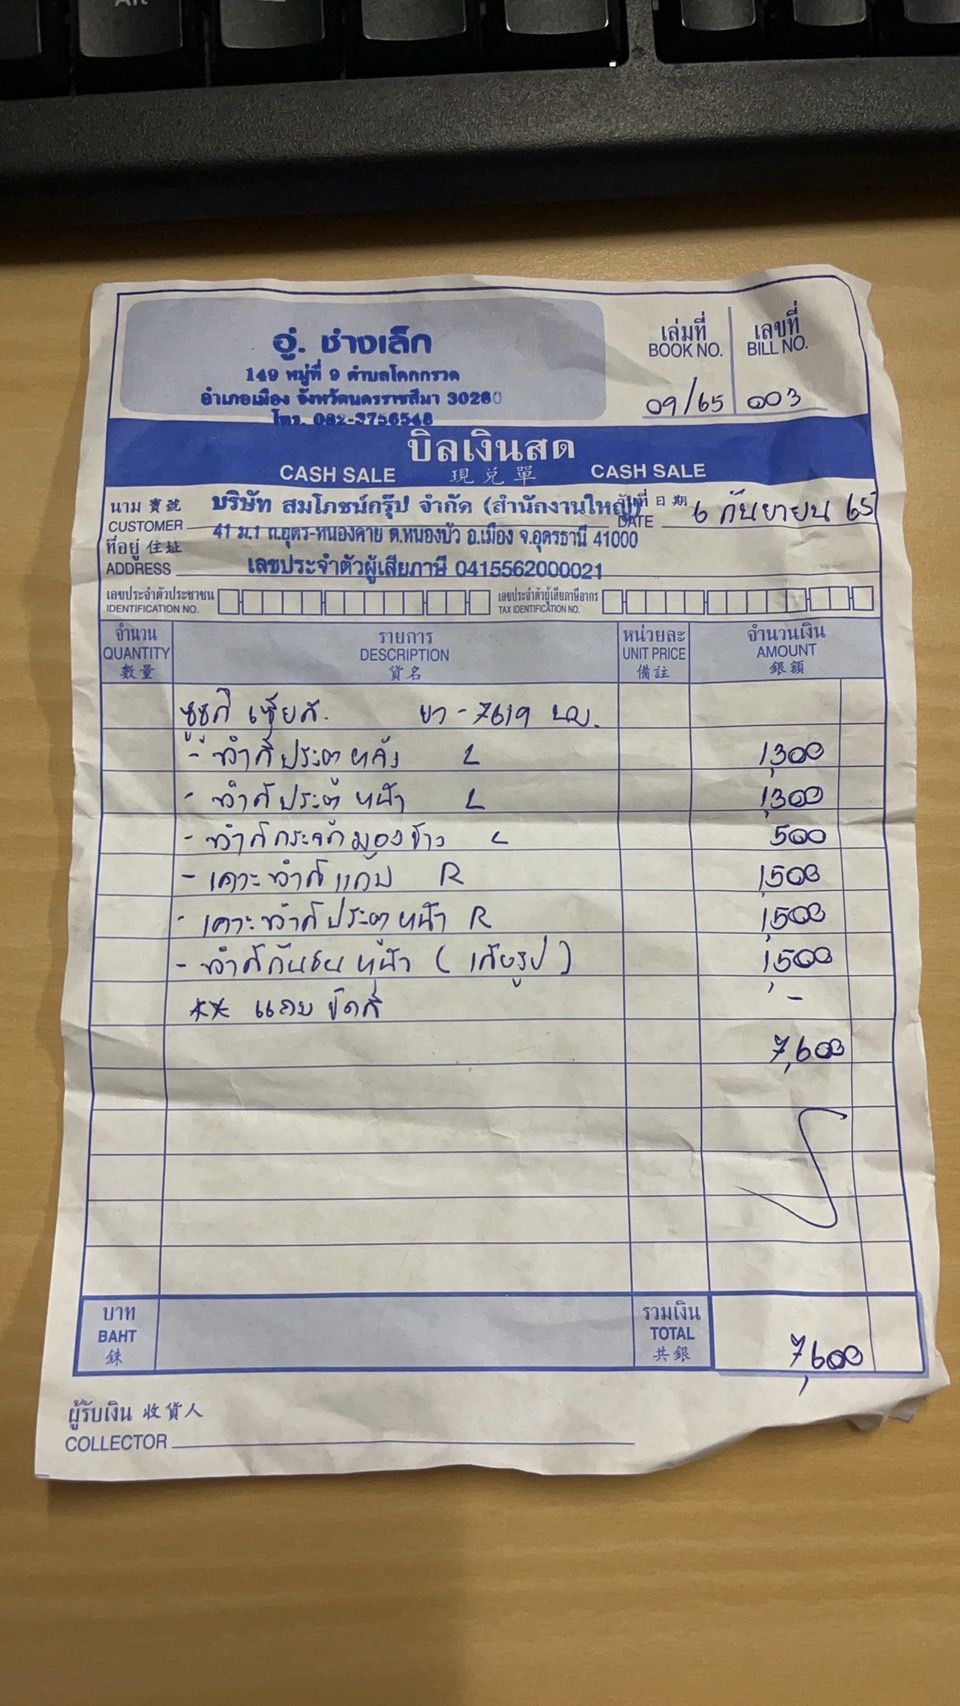 Alt
อู่. ช่างเล็ก
149 หมู่ที่ 9 ตำบลโคกกรวด
อำเภอเมือง จังหวัดนครราชสีมา 30280
โทร. 082-3756548
เล่มที่ เลขที่
BOOK NO. BILL NO.
09/65 003
บิลเงินสด
CASH SALE 現兌單 CASH SALE
นาม 寶號 บริษัท สมโภชน์กรุ๊ป จำกัด (สำนักงานใหญ่) วันที่ 日期 6 กันยายน 65
CUSTOMER DATE
ที่อยู่ 住址 41 ม.1 ถ.อุดร-หนองคาย ต.หนองบัว อ.เมือง จ.อุดรธานี 41000
ADDRESS เลขประจำตัวผู้เสียภาษี 0415562000021
เลขประจำตัวประชาชน เลขประจำตัวผู้เสียภาษีอากร
IDENTIFICATION NO. TAX IDENTIFICATION NO.
จำนวน รายการ หน่วยละ จำนวนเงิน
QUANTITY DESCRIPTION UNIT PRICE AMOUNT
數量 貨名 備註 銀額
ซูซูกิ เซียส. ยา - 7619 นม.
- ทำสีประตูหลัง L 1,300
- ทำสีประตูหน้า L 1,300
- ทำสีกระจกมองข้าง L 500
- เคาะทำสีแก้ม R 1,500
- เคาะทำสีประตูหน้า R 1,500
- ทำสีกันชนหน้า (เก็บรูป) 1,500
** แถม ขัดสี -
7,600
บาท รวมเงิน
BAHT TOTAL 7,600
銖 共銀
ผู้รับเงิน 收貨人
COLLECTOR